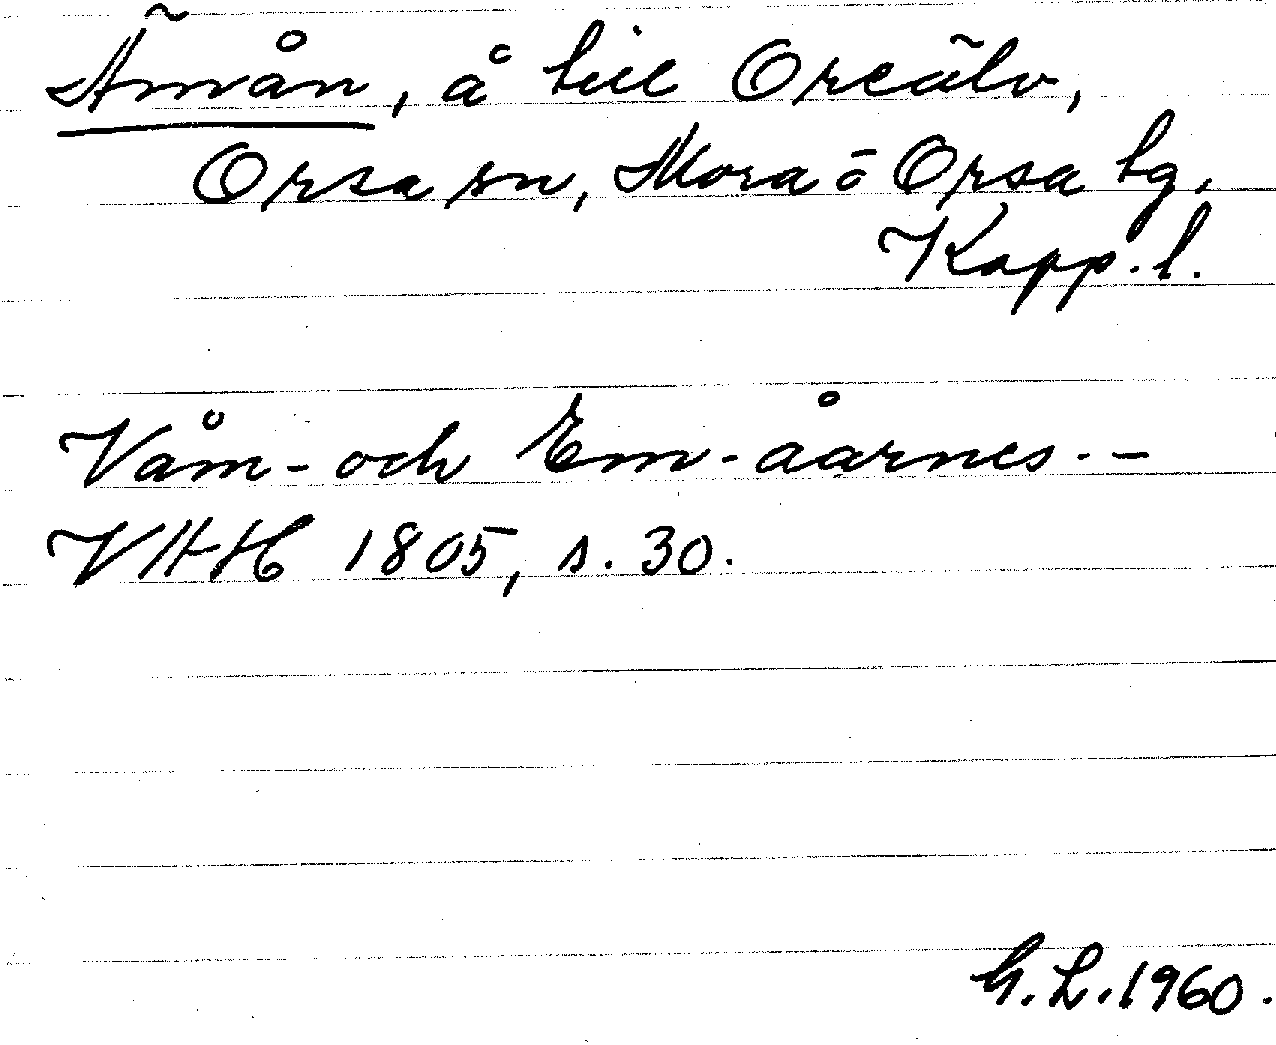 Ämån, å till Oreälv,
Orsa sn, Mora o Orsa tg,
Kopp. l.
Våm- och Em-åarnes. -
VHH 1805, s. 30.
G. L. 1960.